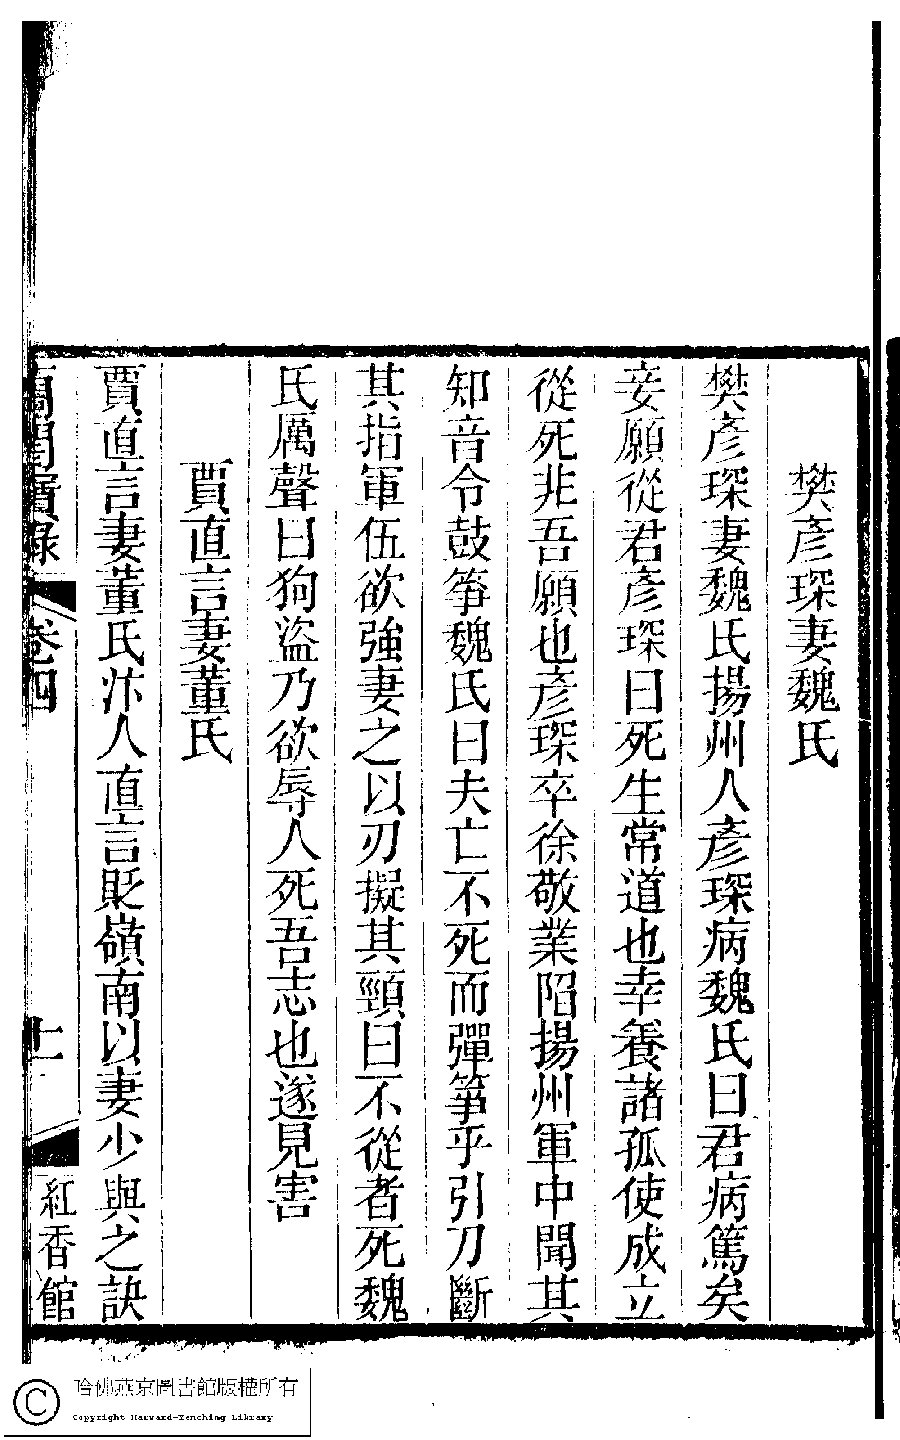 樊彥琛妻魏氏
樊彥琛妻魏氏揚州人彥琛病魏氏曰君病篤矣
妾願從君彥琛曰死生常道也幸養諸孤使成立
從死非吾願也彥琛卒徐敬業陷揚州軍中聞其
知音令鼓箏魏氏曰夫亡不死而彈箏乎引刀斷
其指軍伍欲強妻之以刃擬其頸曰不從者死魏
氏厲聲曰狗盜乃欲辱人死吾志也遂見害
賈直言妻董氏
賈直言妻董氏汴人直言貶嶺南以妻少與之訣
蘭閨寶錄 卷四 十一 紅香館
哈佛燕京圖書館版權所有
Copyright Harvard-Yenching Library